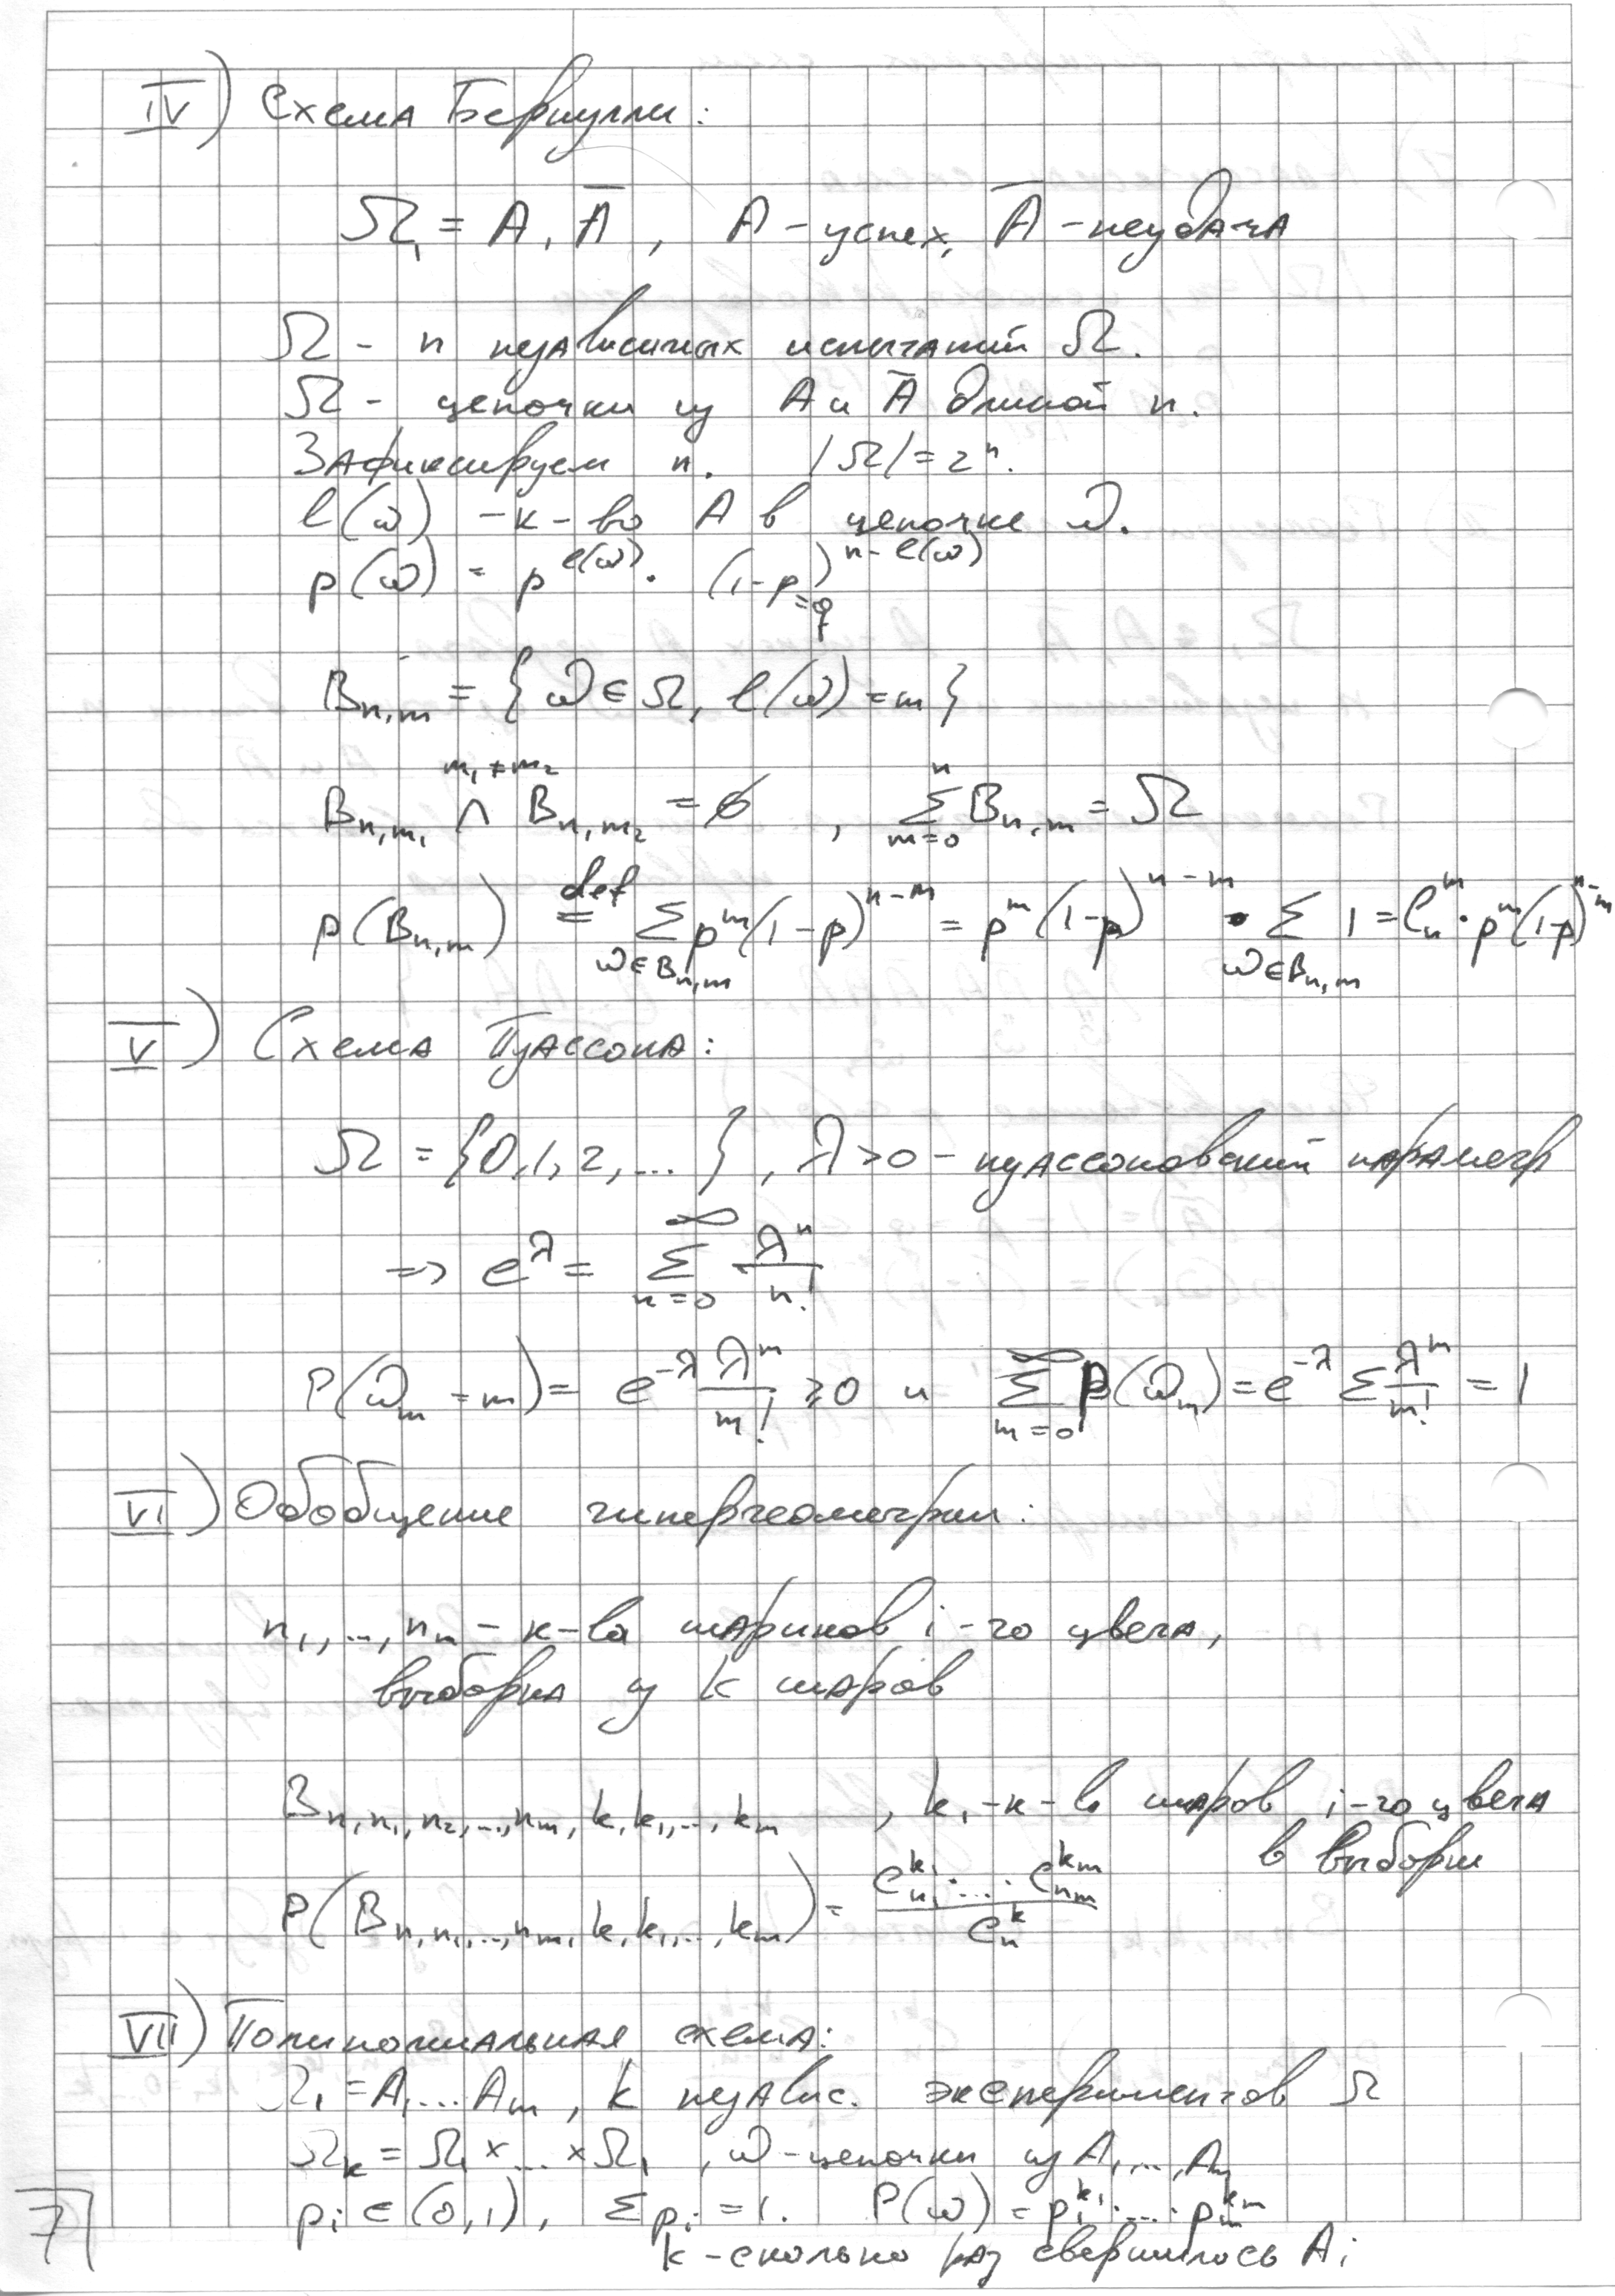 IV) Схема Бернулли:
Ω₁ = A, Ā, A - успех, Ā - неудача
Ω - n независимых испытаний Ω.
Ω - цепочки из A и Ā длиной n.
Зафиксируем n. |Ω| = 2ⁿ.
l(ω) - к-во A в цепочке ω.
p(ω) = p^{l(ω)} · (1-p)_{=q}^{n-l(ω)}
B_{n,m} = {ω ∈ Ω, l(ω) = m}
B_{n,m₁} ∩^{m₁≠m₂} B_{n,m₂} = ∅, Σ_{m=0}^{n} B_{n,m} = Ω
p(B_{n,m}) =^{def} Σ_{ω∈B_{n,m}} p^m (1-p)^{n-m} = p^m (1-p)^{n-m} · Σ_{ω∈B_{n,m}} 1 = C_n^m · p^m (1-p)^{n-m}
V) Схема Пуассона:
Ω = {0, 1, 2, ...}, λ > 0 - пуассоновский параметр
=> e^λ = Σ_{n=0}^{∞} λ^n / n!
P(ω_m = m) = e^{-λ} λ^m / m! ≥ 0 и Σ_{m=0}^{∞} p(ω_m) = e^{-λ} Σ λ^m / m! = 1
VI) Обобщение гипергеометрии:
n₁, ..., n_m - к-ва шариков i-го цвета,
выборка из k шаров
B_{n,n₁,n₂,...,n_m,k,k₁,...,k_m}, k_i - к-во шаров i-го цвета
в выборке
P(B_{n,n₁,...,n_m,k,k₁,...,k_m}) = C_{n₁}^{k₁} · ... · C_{n_m}^{k_m} / C_n^k
VII) Полиномиальная схема:
Ω₁ = A₁...A_m, k независ. экспериментов Ω
Ω_k = Ω₁ × ... × Ω₁, ω - цепочки из A₁, ..., A_m
p_i ∈ (0,1), Σp_i = 1. P(ω) = p₁^{k₁} · ... · p_m^{k_m}
k - сколько раз свершилось A_i
7